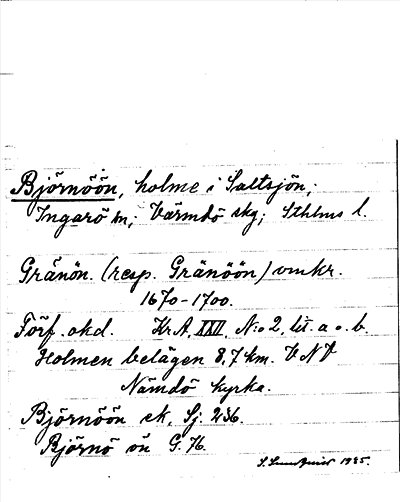 Björnöön, holme i Saltsjön,;
Ingarö sn,; Värmdö skg; Sthlms l.
Gränön. (resp. Gränöön) omkr.
1670-1700.
Förf. okd. Kr.A. XXII. N:o 2, lit. a o. b.
Holmen belägen 8,7 km. VNV
Nämdö kyrka.
Björnöön ek. Sj. 236.
Björnö ön G. 76.
1935.